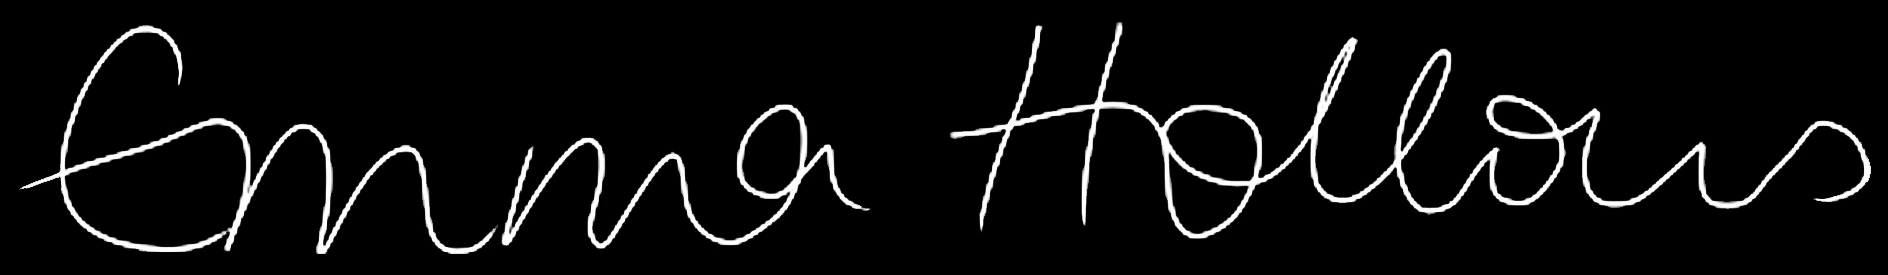 Emma Hollows